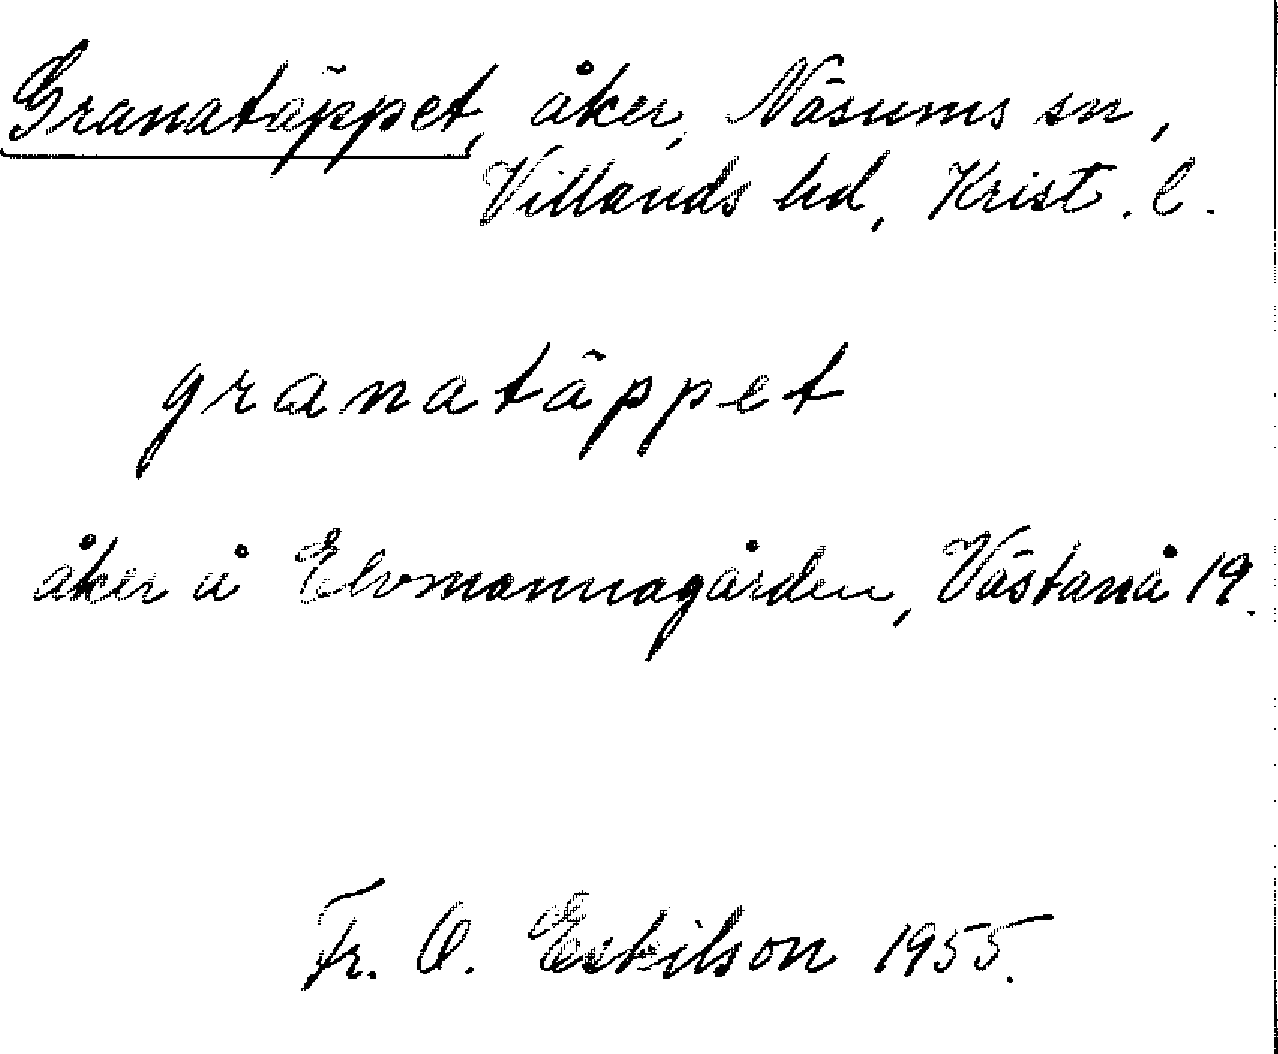 Granatäppet, åker, Näsums sn,
Villands hd, Krist. l.
granatäppet
åker å Elvmannagården, Västanå 19.
Fr. O. Eskilson 1955.